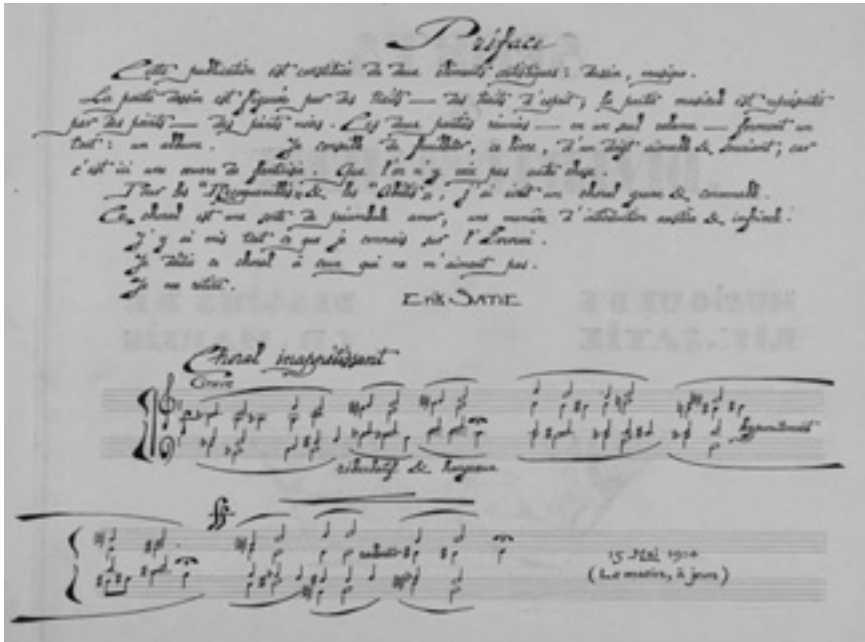 Préface
Cette publication est constituée de deux éléments artistiques : dessin, musique.
La partie dessin est figurée par des traits — des traits d'esprit ; la partie musicale est représentée
par des points — des points noirs. Ces deux parties réunies — en un seul volume — forment un
tout : un album. Je conseille de feuilleter, ce livre, d'un doigt aimable & souriant ; car
c'est ici une œuvre de fantaisie. Que l'on n'y voie pas autre chose.
Pour les "Recroquevillés" & les "Abêtis", j'ai écrit un choral grave & convenable.
Ce choral est une sorte de préambule amer, une manière d'introduction austère & infrivole.
J'y ai mis tout ce que je connais sur l'Ennui.
Je dédie ce choral à ceux qui ne m'aiment pas.
Je me retire.
ERIK SATIE
MUSIQUE DE
DESSINS DE
ERIK SATIE
CH. MARTIN
Choral inappétissant
Grave
hypocritement
rébarbatif & hargneux
ff
ralentir
15 Mai 1914
(Le matin, à jeun)